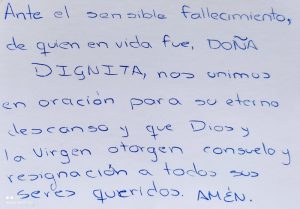 Ante el sensible fallecimiento,
de quien en vida fue, DOÑA
DIGNITA, nos unimos
en oración para su eterno
descanso y que Dios y
la Virgen otorgen consuelo y
resignación a todos sus
seres queridos. AMÉN.